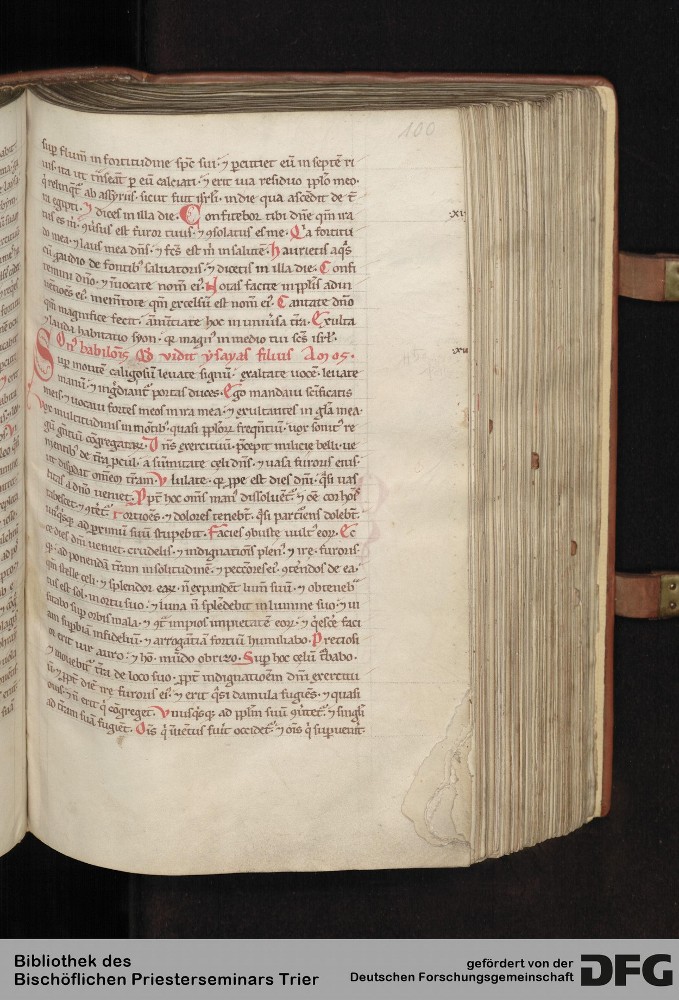 100
sup flum̅ in fortitudine sp̅c sui· ⁊ percutiet eu̅ in septe̅ ri
uis· ita ut t̅nseat̅ p eu̅ calciati· ⁊ erit uia residuo pp̅lo meo·
q̇ relinq̅t᷑ ab assyriis· sicut fuit isrl̅· in die qua asce̅dit de t̅
ra egipti· ⁊ dices in illa die· Confitebor tibi dn̅e qm̅ ira
tus es m̅· ꝯu̅sus est furor tuus· ⁊ ꝯsolatus es me·
do mea· ⁊ laus mea dn̅s· ⁊ fc̅s est m̅ in salute̅· haurietis aq̅s
cu̅ gaudio de fontib᷒ saluatoris· ⁊ dicetis in illa die· Confi
temini dn̅o· ⁊ i̅uocate nom̅ ei᷒· Notas facite in pp̅lis adin
ue̅tio̅es ei᷒· mem̅tote qm̅ excelsu̅ est nom̅ ei᷒· Cantate dn̅o
qm̅ magnifice fecit· a̅nu̅ciate hoc in uniu̅sa t̅ra· Exulta
⁊ lauda habitatio syon· q̅ magn᷒ in medio tui sc̅s isrl̅·
On᷒ babilo̅is qd̅ vidit ysayas filius Amos·
Sup monte̅ caligosu̅ leuate signu̅· exaltate uoce̅· leuate
manu̅· ⁊ ing̅diant᷑ portas duces· Ego mandaui sc̅ificatis
meis· ⁊ uocaui fortes meos in ira mea· ⁊ exultantes in gl̅a mea·
Vox multitudinis in mo̅tib᷒· quasi pp̅lor̅ freque̅tiu̅· uox sonit᷒ re
gu̅ ge̅tiu̅ co̅gregatar̅· Dn̅s exercituu̅· p̅cepit milicie belli· ue
nientib᷒ de t̅ra p̅cul· a su̅mitate celi dn̅s· ⁊ uasa furoris eius·
ut disp̅dat om̅em t̅ram· Vlulate· q̅ ppe est dies dn̅i· q̅si uas
titas a dn̅o ueniet· Ppt̅ hoc om̅s man᷒ dissoluent᷑· ⁊ oe̅ cor ho̅is
tabescet· ⁊ ꝯteret᷑· Tortio̅es· ⁊ dolores tenebt̅· q̅si parturiens dolebt̅·
unq̅sq̅ ad p̅ximu̅ suu̅ stupebit· Facies ꝯbuste uult᷒ eor̅· Ec
ce dies dn̅i ueniet· crudelis· ⁊ indignatio̅is plen᷒· ⁊ ire· furoris
q̅· ad ponenda̅ t̅ram in solitudine̅· ⁊ pecc̅ores ei᷒ ꝯterendos de ea·
Qm̅ stelle celi· ⁊ splendor ear̅· n̅ expandent lum̅ suu̅· ⁊ obtenebra
tus est sol· in ortu suo· ⁊ luna n̅ sple̅debit in lumine suo· ⁊ ui
sitabo sup orbis mala· ⁊ ꝯt̅ impios impietate̅ eor̅· ⁊ q̇esce̅ faci
am supbia̅ infideliu̅· ⁊ arroga̅tia̅ fortiu̅ humiliabo· Preciosi
or erit uir auro· ⁊ ho̅· mu̅do obrizo· Sup hoc celu̅ t̅babo·
⁊ mouebit᷑ t̅ra de loco suo· ppt̅ indignatio̅em dn̅i exercitu
u̅· ⁊ ppt̅ die̅ ire furoris ei᷒· ⁊ erit q̅si damula fugie̅s· ⁊ quasi
ouis· ⁊ n̅ erit q̇ co̅greget· Vnusq̅sq̅ ad pp̅lm suu̅ ꝯu̅tet᷑· ⁊ singl̅i
ad t̅ram sua̅ fugient· Ois̅ q̇ i̅ue̅tus fu̅it occidet᷑· ⁊ ois̅ q̇ supuen̅it·
Bibliothek des
Bischöflichen Priesterseminars Trier
gefördert von der
Deutschen Forschungsgemeinschaft
DFG